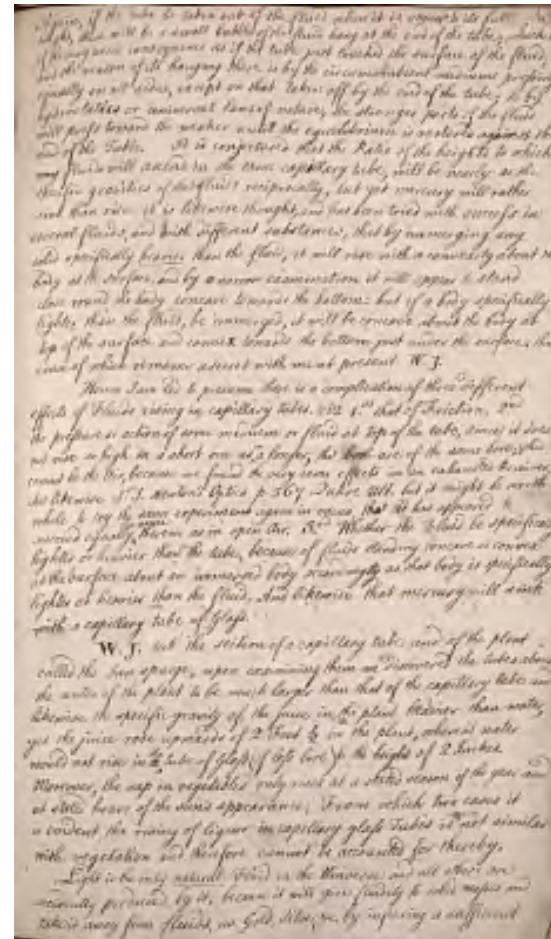 Again, if the tube be taken out of the fluid when it is risen to its full
height, there will be a small bubble of the fluid hang at the end of the tube, which
is of the same consequence as if the tube just touched the surface of the fluid;
and the reason of its hanging there is by the circumambient medium pressing
equally on all sides, except on that taken off by the end of the tube; so by
hydrostatics or universal laws of nature, the stronger parts of the fluid
will press toward the weaker until the equilibrium is restored against the
end of the Tube. It is conjectured that the Ratio of the heights to which
any fluids will ascend in the same capillary tube, will be nearly as the
specific gravities of the fluids reciprocally, but yet mercury will rather
sink than rise. it is likewise thought, and has been tried with success in
several fluids, and with different substances, that by immerging any
solid specifically heavier than the fluid, it will rise with a convexity about the
body at the surface, and by a narrow examination it will appear to stand
close round the body concave towards the bottom: but if a body specifically
lighter than the fluid, be immerged, it will be concave about the body at
top of the surface and convex towards the bottom just under the surface, the
reason of which remains a secret with me at present W. J.
Hence I am led to presume there is a complication of three different
effects of Fluids rising in capillary tubes. viz 1.st that of Friction, and
the pressure or action of some medium or fluid at top of the tube, since it does
not rise so high in a short one as a longer, tho' both are of the same bore; this
cannot be the Air, because we found the very same effects in an exhausted Receiver,
See likewise S.r I. Newton's Optics p. 367 but it might be worth
while to try the same experiment again in vacuo, that it has appeared to
succeed equally therein as in open Air. Whether the Fluid be specifically
lighter or heavier than the tube, because of fluids standing concave or convex
at the surface about an immerged body accordingly as that body is specifically
lighter or heavier than the fluid. And likewise that mercury will sink
with a capillary tube of Glass.
W. J. cut the section of a capillary tube and of the plant
called the Sun spurge, upon examining them we discovered the tubes about
the center of the plant to be much larger than that of the capillary tube and
likewise the specific gravity of the juice in the plant heavier than water,
yet the juice rose upwards of 2 Feet in the plant, whereas water
would not rise in the tube of Glass (of less bore) to the height of 2 Inches
Moreover, the sap in vegetables only rises at a stated season of the year and
at stated hours of the sun's appearance; From which two cases it
is evident the rising of liquor in capillary glass Tubes is not similar
with vegetation and therefore cannot be accounted for thereby.
Light is the only natural Fluid in the Universe and all others are
actually produced by it, because it will give fluidity to solid masses and
take it away from fluids, as Gold, Silver, &c. by infusing a sufficient